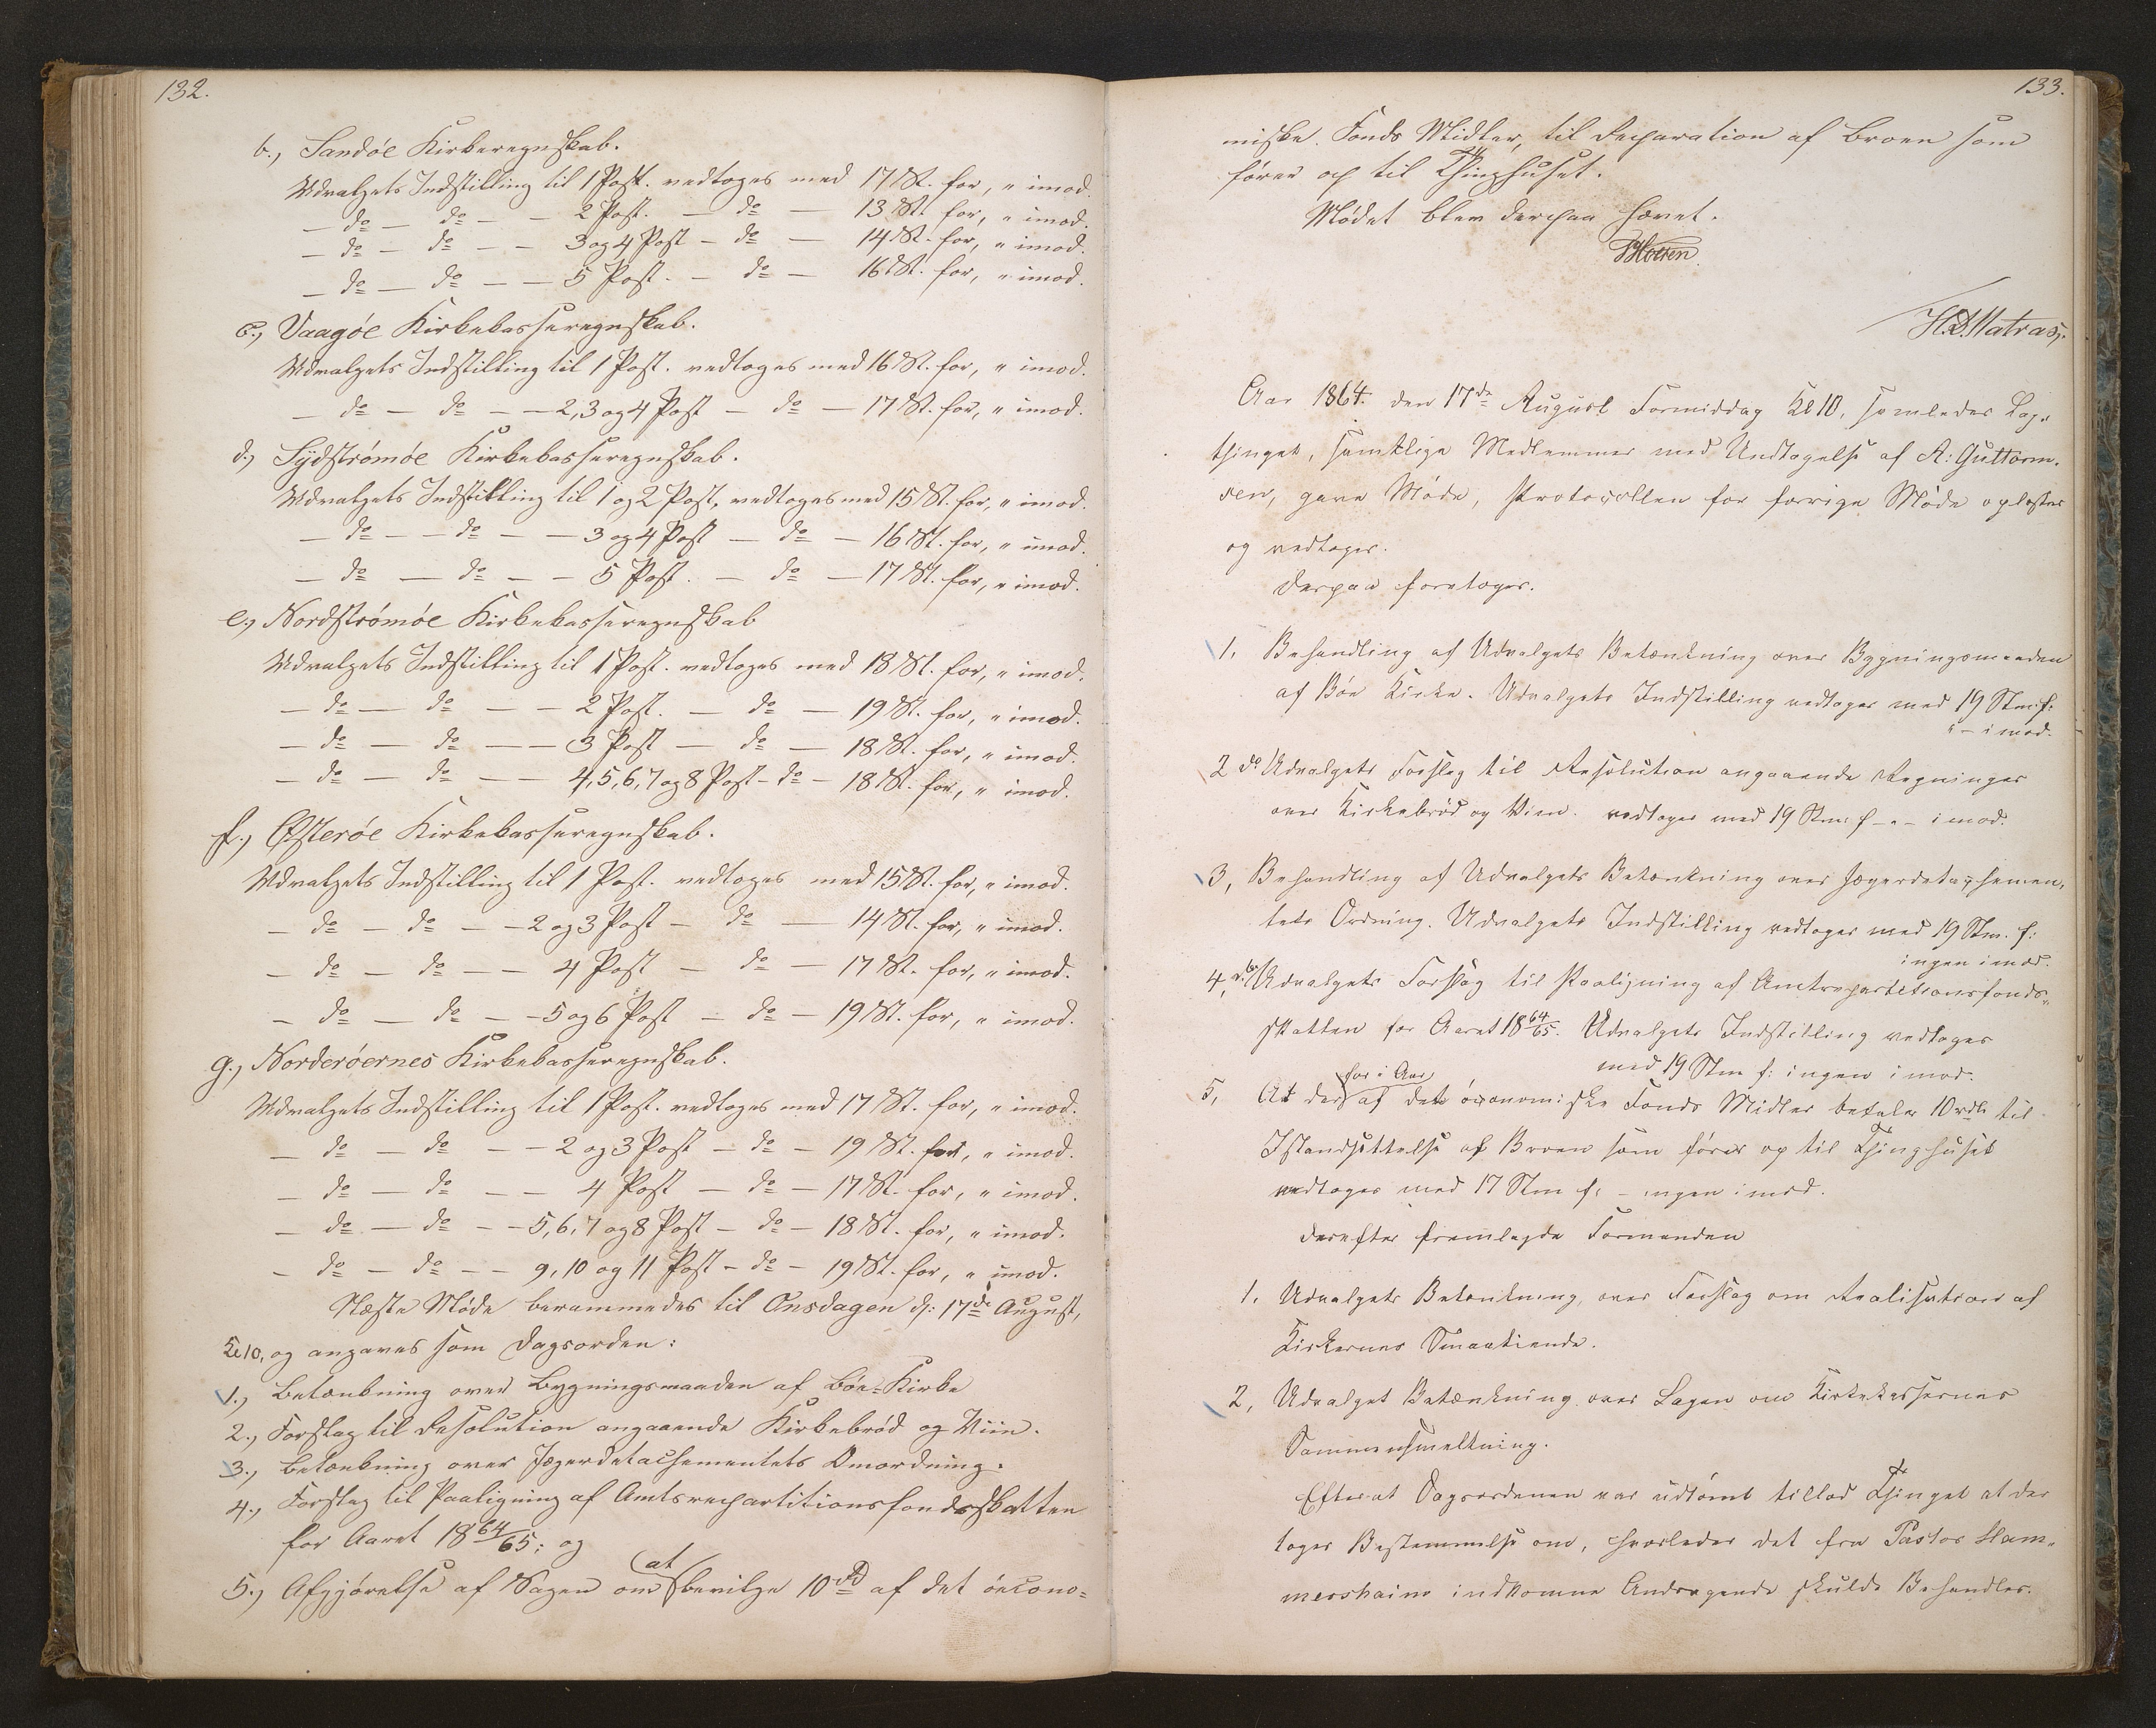 132.
b., Sandøe Kirkeregnskab.
Udvalgets Indstilling til 1 Post. vedtoges med 17 St. for, „ imod.
— do — do — — 2 Post. — do — 13 St. for, „ imod.
— do — do — — 3 og 4 Post — do — 14 St. for, „ imod.
— do — do — — 5 Post. — do — 16 St. for, „ imod.
c., Vaagøe Kirkekasseregnskab.
Udvalgets Indstilling til 1 Post. vedtoges med 16 St. for, „ imod.
— do — do — — 2, 3 og 4 Post — do — 17 St. for, „ imod.
d., Sydstrømøe Kirkekasseregnskab.
Udvalgets Indstilling til 1 og 2 Post, vedtoges med 15 St. for, „ imod.
— do — — do — — 3 og 4 Post — do — 16 St. for, „ imod.
— do — do — — 5 Post. — do — 17 St. for, „ imod.
e., Nordstrømøe Kirkekasseregnskab
Udvalgets Indstilling til 1 Post. vedtoges med 18 St. for, „ imod.
— do — do — — 2 Post. — do — 19 St. for, „ imod.
— do — do — — 3 Post — do — 18 St. for, „ imod.
— do — do — — 4, 5, 6, 7 og 8 Post — do — 18 St. for, „ imod.
f., Østerøe Kirkekasseregnskab.
Udvalgets Indstilling til 1 Post. vedtoges med 15 St. for, „ imod.
— do — do — — 2 og 3 Post — do — 14 St. for, „ imod.
— do — do — — 4 Post — do — 17 St. for, „ imod.
— do — do — — 5 og 6 Post — do — 19 St. for, „ imod.
g., Norderøernes Kirkekasseregnskab.
Udvalgets Indstilling til 1 Post. vedtoges med 17 St. for, „ imod.
— do — do — — 2 og 3 Post — do — 19 St. for, „ imod.
— do — do — — 4 Post — do — 17 St. for, „ imod.
— do — do — — 5, 6, 7 og 8 Post — do — 18 St. for, „ imod.
— do — do — — 9, 10 og 11 Post — do — 19 St. for, „ imod.
Næste Møde berammedes til Onsdagen d: 17de August,
Kl 10, og angaves som Dagsorden:
1., Betænkning over Bygningsmaaden af Bøe-Kirke
2., Forslag til Resolution angaaende Kirkebrød og Viin.
3., Betænkning over Jægerdetachementets Omordning.
4., Forslag til Paaligning af Amtsrepartitionsfondsskatten
for Aaret 18 64/65; og
5., Afgjørelse af Sagen om at bevilge 10 Rd af det øecono-
133.
miske Fonds Midler, til Reparation af Broen som
fører op til Thinghuset.
Mødet blev derpaa hævet.
H.D. Matras,
Aar 1864. den 17de August Formiddag Kl 10, samledes Lag-
thinget, samtlige Medlemmer med Undtagelse af A: Guttorm-
sen, gave Møde, Protocollen for forrige Møde oplæstes
og vedtoges.
Derpaa foretoges.
1. Behandling af Udvalgets Betænkning over Bygningsmaaden
af Bøe Kirke. Udvalgets Indstilling vedtoges med 19 Stm: f:
„ — imod.
2 do Udvalgets Forslag til Resolution angaaende Regninger
over Kirkebrød og Viin. vedtoges med 19 Stm: f — „ — imod.
3, Behandling af Udvalgets Betænkning over Jægerdetaschemen-
tets Ordning. Udvalgets Indstilling vedtoges med 19 Stm. f:
ingen imod.
4, do Udvalgets Forslag til Paaligning af Amtrepartitionsfonds-
skatten for Aaret 18 64/65. Udvalgets Indstilling vedtoges
med 19 Stm f: ingen imod.
5, At der for i Aar af det øconomiske Fonds Midler betales 10 rdl til
Istandsættelse af Broen som fører op til Thinghuset
vedtoges med 17 Stm f: — ingen imod.
Derefter fremlagde Formanden
1. Udvalgets Betænkning over Forslag om Realisation af
Kirkernes Smaatiende.
2, Udvalget Betænkning over Lagen om Kirkekassernes
Sammensmeltning.
Efterat Dagsordenen var udtømt tillod Thinget at der
toges Bestemmelse om, hvorledes det fra Pastor Ham-
mershaim indkomne Andragende skulde Behandles.